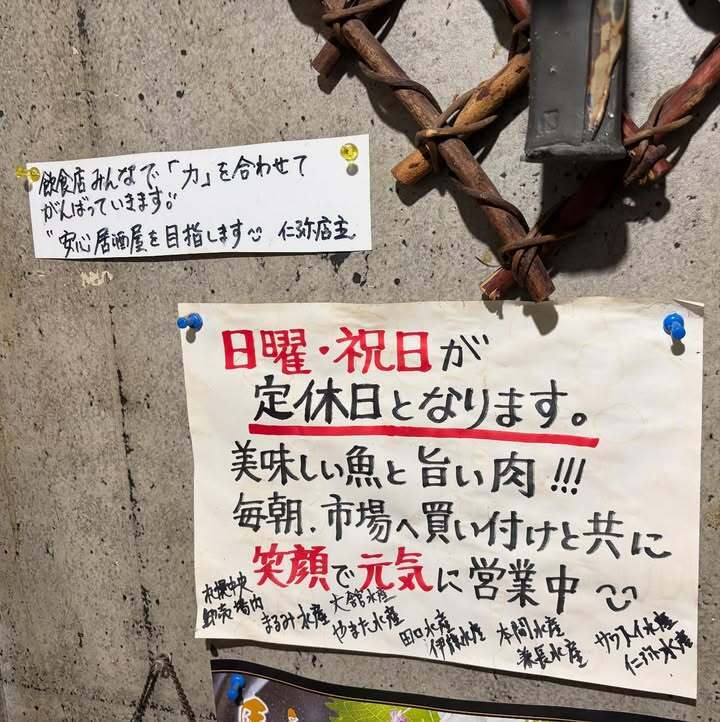 飲食店みんなで「力」を合わせて
がんばっていきます。
"安心居酒屋を目指します 仁弥店主
日曜・祝日が
定休日となります。
美味しい魚と旨い肉!!!
毎朝、市場へ買い付けと共に
笑顔で元気に営業中
札幌中央
卸売場内
まるみ水産
大舘水産
やまた水産
田口水産
伊藤水産
本間水産
兼長水産
仁弥水産